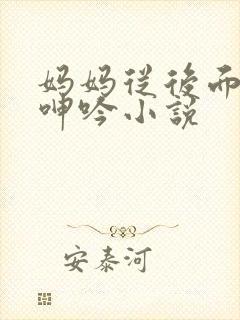 妈妈从後而
呻吟小説
安泰河